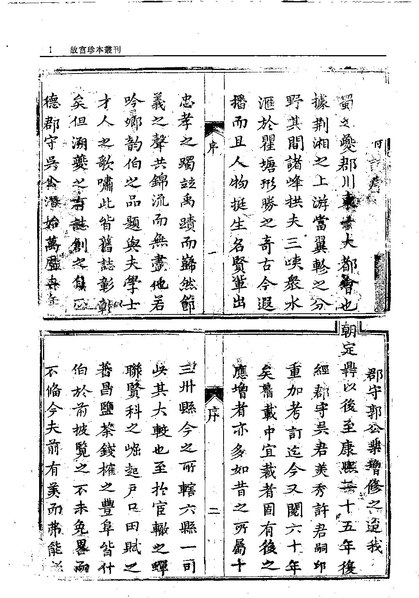 1 故宫珍本叢刊
蜀之夔郡川東一大都會也
據荆湘之上游當翼軫之分
野其間諸峰拱夫三峡衆水
滙於瞿塘形勝之奇古今遐
播而且人物挺生名賢輩出
序 一
忠孝之躅竝禹蹟而巋然節
義之聲共錦流而無盡他若
吟鄉韵伯之品題與夫學士
才人之歌嘯此皆舊誌彰彰
矣但溯夔之有誌創之自正
德郡守吳公潛始萬曆
郡守郭公棐增修之迨我
朝定鼎以後至康熙二十五年後
經郡守吳君美秀許君嗣印
重加考訂迄今又閱六十年
矣舊載中宜裁者固有後之
序 二
應增者亦多如昔之所屬十
三州縣今之所轄六縣一司
此其大較也至於宦轍之蟬
聯賢科之崛起戶口田賦之
蕃昌鹽茶錢榷之豐阜皆什
伯於前披覽之下未免畧而
不備今夫前有美而弗能